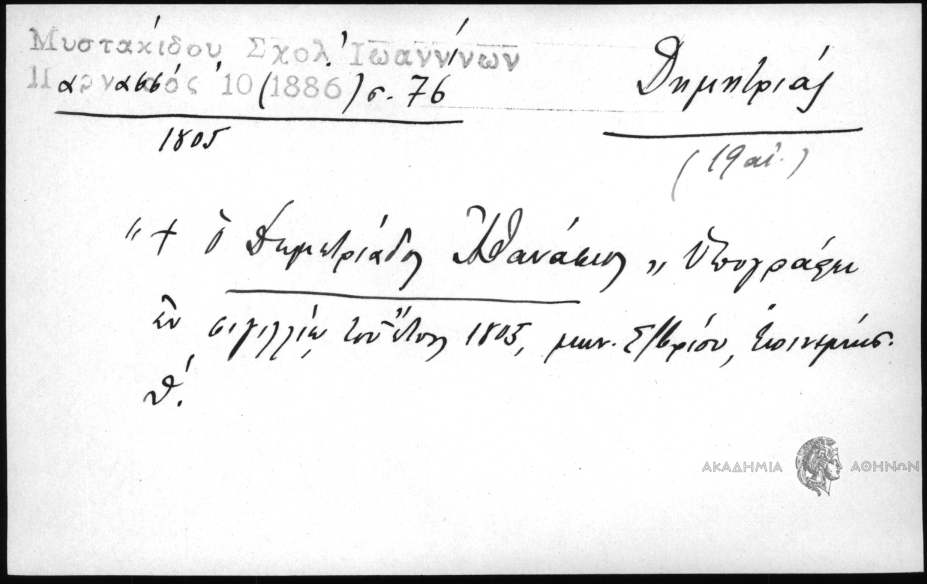 Μυστακίδου Σχολ. Ἰωαννίνων
Παρνασσός 10 (1886) σ. 76
1805
Δημητριάς
(19 αἰ.)
"+ ὁ Δημητριάδος Ἀθανάσιος" ὑπογράφει
ἐν σιγιλλίῳ τοῦ ἔτους 1805, μην. Σ/βρίου, ἐπινεμήσ.
θ'.
ΑΚΑΔΗΜΙΑ ΑΘΗΝΩΝ